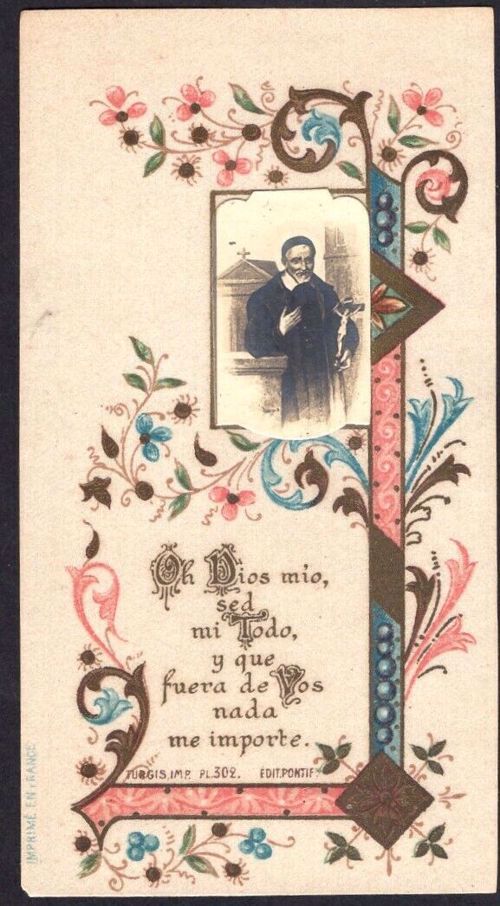 Oh Dios mío,
sed
mi Todo,
y que
fuera de Vos
nada
me importe.
TURGIS, IMP. PL.302. EDIT.PONTIF.
IMPRIMÉ EN FRANCE